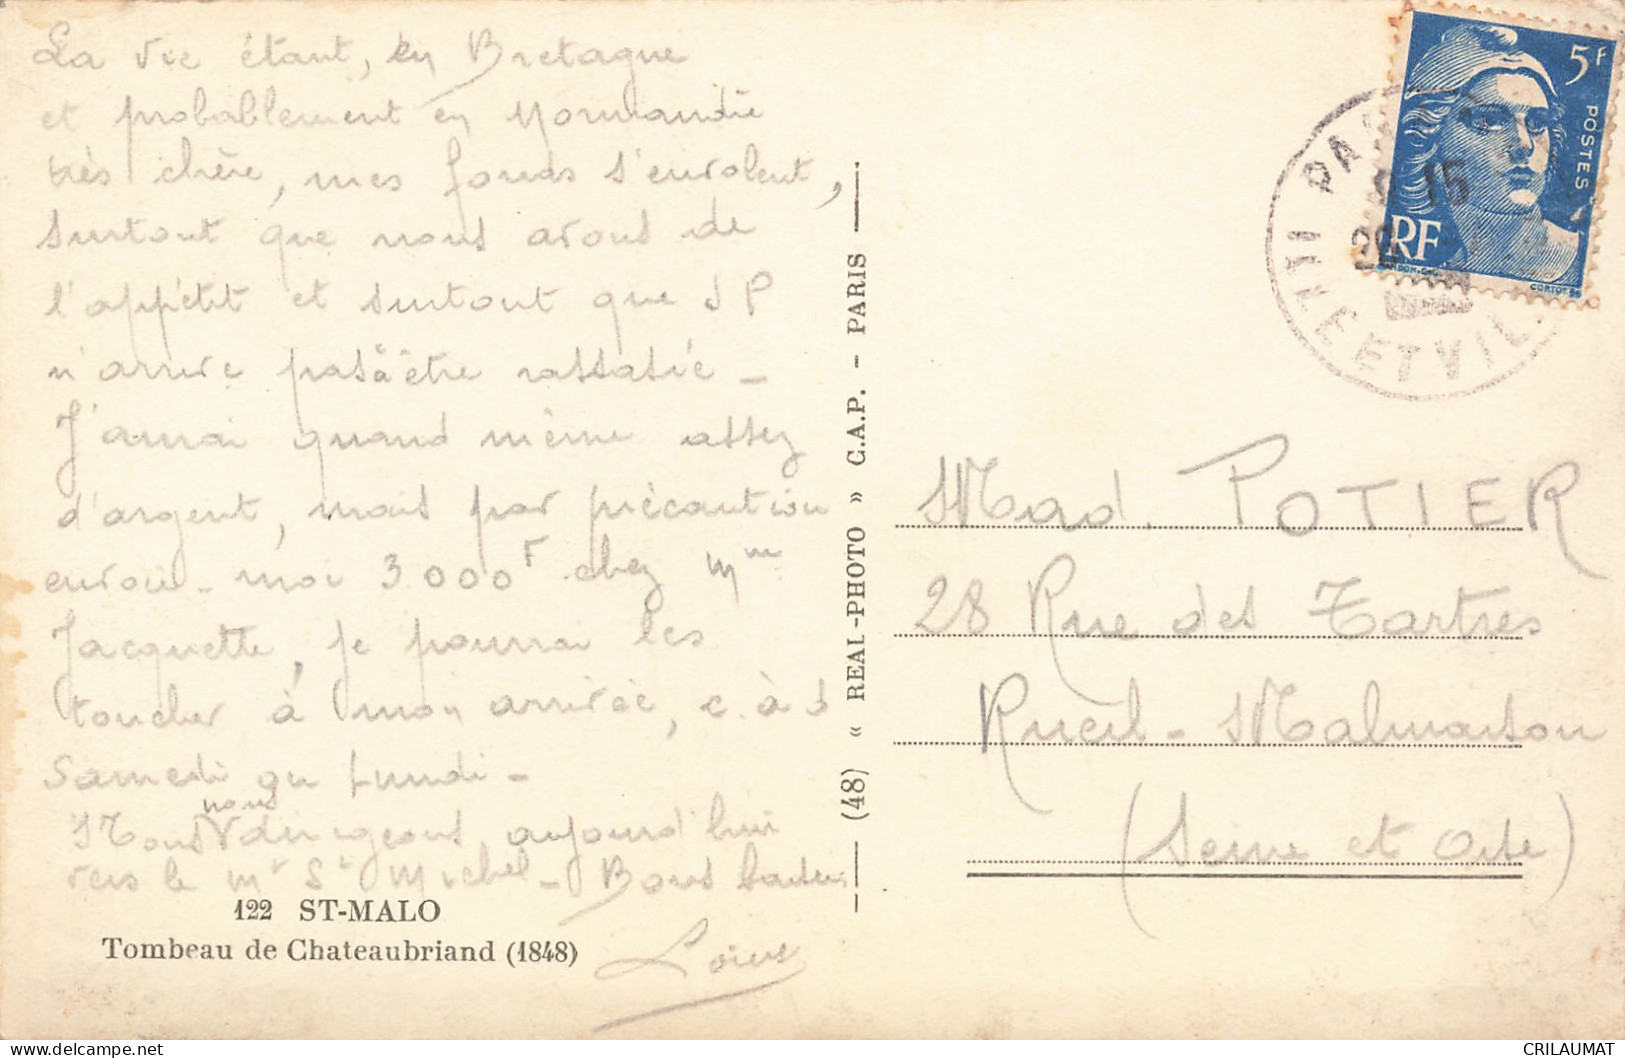 La vie étant, en Bretagne
et probablement en Normandie
très chère, mes fonds s'envolent,
surtout que nous avons de
l'appétit et surtout que J P
n'arrive pas à être rassasié -
J'aurai quand même assez
d'argent, mais par précaution
envoie-moi 3.000F chez Mme
Jacquette, je pourrai les
toucher à mon arrivée, c.à d
Samedi ou Lundi -
Nous nous dirigeons aujourd'hui
vers le Mt St Michel - Bons baisers
122 ST-MALO
Tombeau de Chateaubriand (1848)
(48) « REAL-PHOTO » C.A.P. - PARIS
5F
POSTES
RF
CORTOT
15
ILLE ET VIL
Mad. POTIER
28 Rue des Tartres
Rueil-Malmaison
(Seine et Oise)
CRILAUMAT